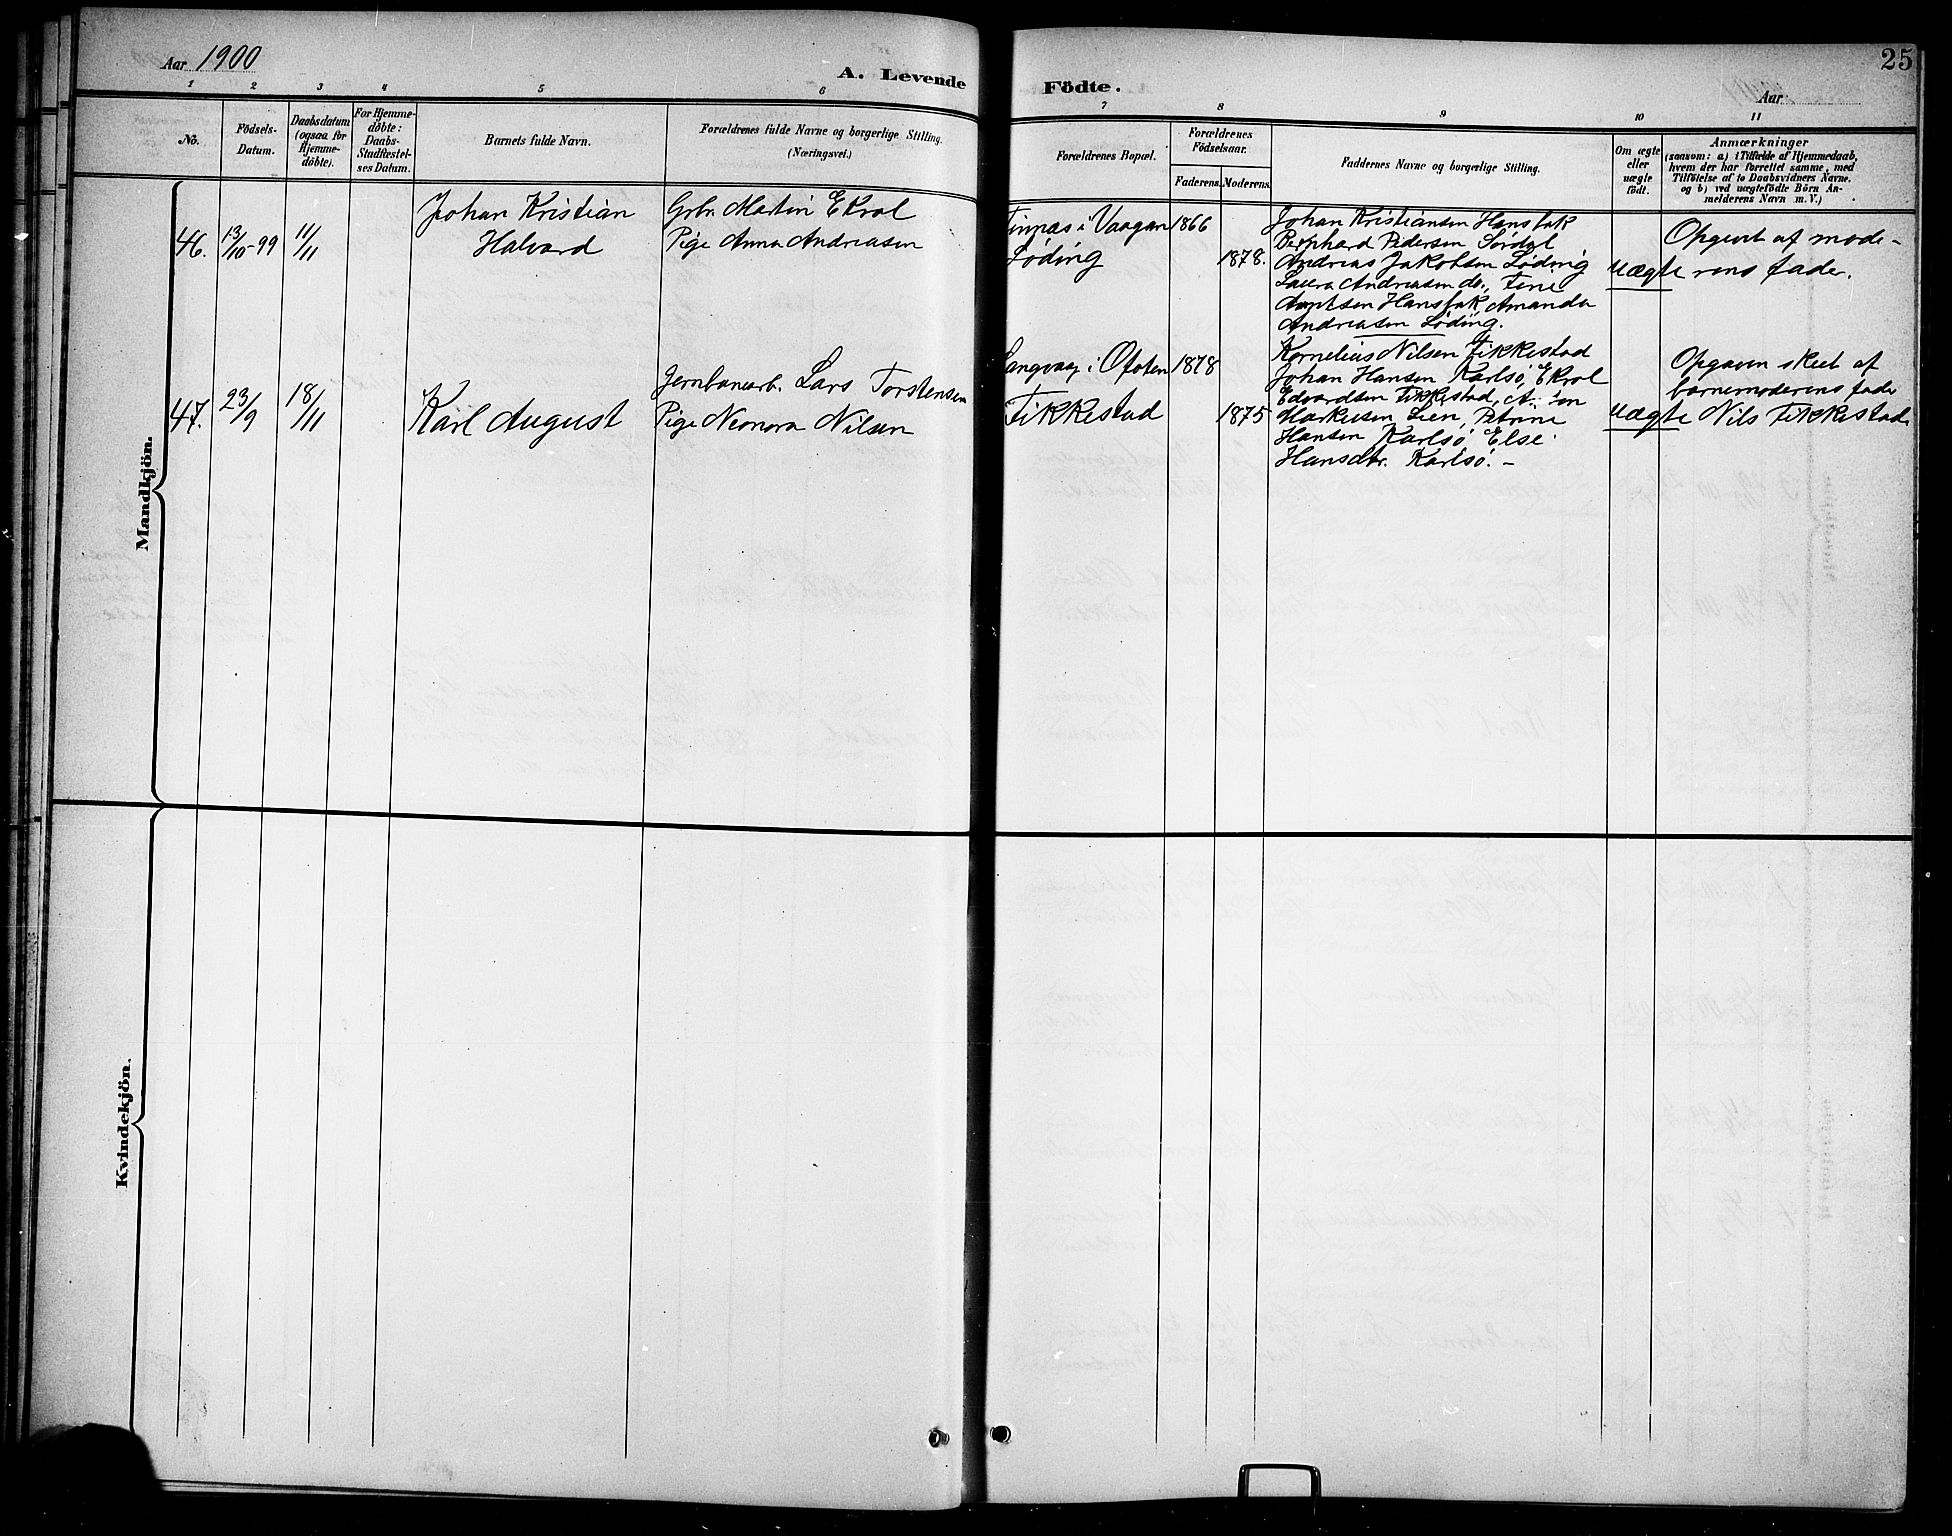 Aar 1900
A. Levende
Födte.
Aar
25
1 2 3 4 5 6 7 8 9 10 11
No.
Födsels-
Datum.
Daabsdatum
(ogsaa for
Hjemme-
döbte).
For Hjemme-
döbte:
Daabs-
Stadfæstel-
ses Datum.
Barnets fulde Navn.
Forældrenes fulde Navne og borgerlige Stilling.
(Næringsvei.)
Forældrenes Bopæl.
Forældrenes
Födselsaar.
Faderens. Moderens.
Faddernes Navne og borgerlige Stilling.
Om ægte
eller
uægte
født.
Anmærkninger
(saasom: a) i Tilfælde af Hjemmedaab,
hvem der har forrettet samme, med
Tilföielse af to Daabsvidners Navne.
og b) ved uægtefödte Börn An-
melderens Navn m. V.)
Mandkjön.
46.
13/10-99
11/11
Johan Kristian
Halvard
Grbr. Martin Ekrol
Pige Anna Andreasen
Finnæs i Vaagan
Løding
1866
1878.
Johan Kristiansen Hansbak
Bernhard Pedersen Sørdal
Andreas Jakobsen Løding
Laura Andreasen do., Tine
Arntsen Hansbak, Amanda
Andreasen Løding.
uægte
Opgivet af mode-
rens fader.
47.
23/9
18/11
Karl August
Jernbanearb. Lars Torstensen
Pige Neonora Nilsen
Langvaag i Ofoten
Fikkestad
1878
1875
Kornelius Nilsen Fikkestad
Johan Hansen Karlsø, Ekrol
Edvardsen Fikkestad,
Markusen Lien, Petrine
Hansen Karlsø, Else
Hansdtr. Karlsø. –
uægte
Opgaven skeet af
barnemoderens fader
Nils Fikkestad
Kvindekjön.